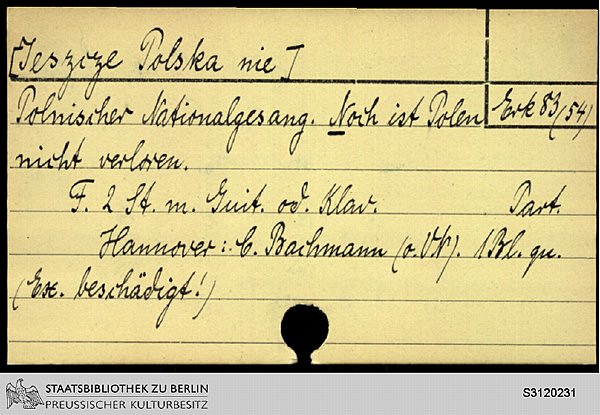 [Jeszcze Polska nie]
Polnischer Nationalgesang. Noch ist Polen
Erk 83(54)
nicht verloren.
F. 2 St. m. Guit. od. Klav. Part.
Hannover: C. Bachmann (o. VN). 1 Bl. qu.
(Ex. beschädigt!)
STAATSBIBLIOTHEK ZU BERLIN
PREUSSISCHER KULTURBESITZ
S3120231